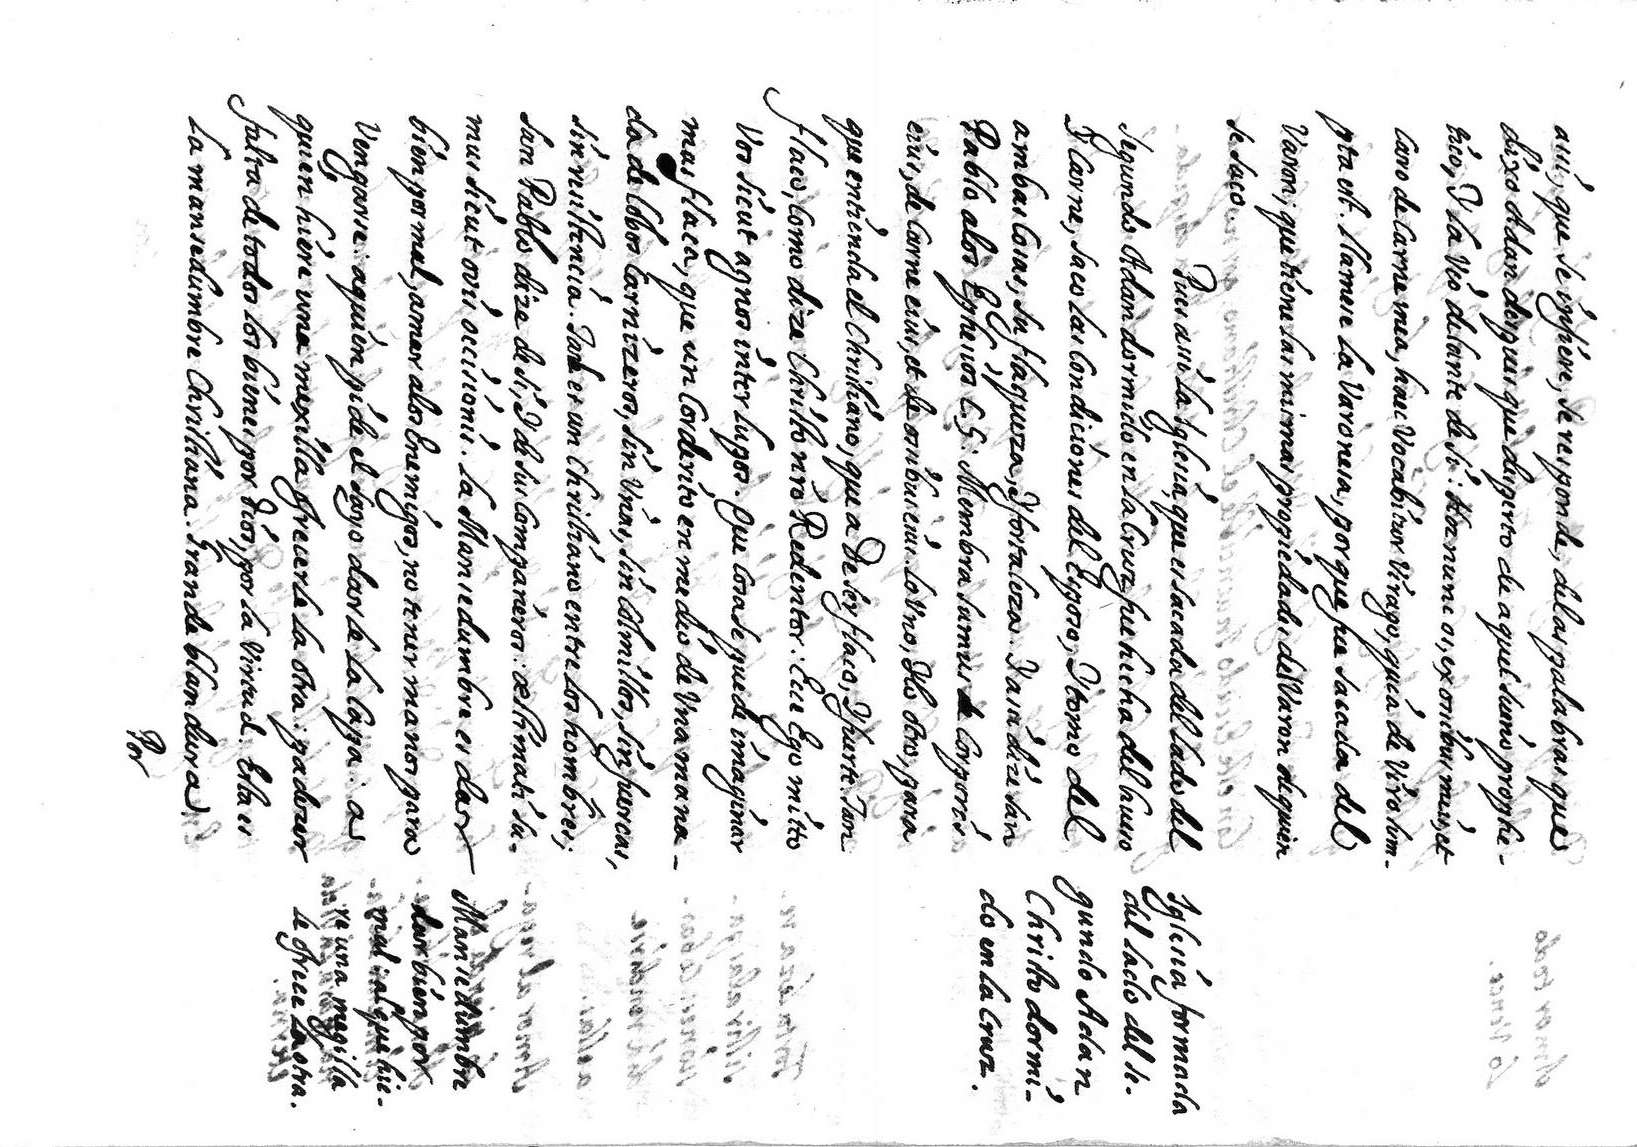 assi, que se infiere, se responde, delas palabras que
dixo Adan despues que disperto de aquel sueño prophe-
tico, I la vio delante de si: Hoc nunc os, ex ossibus meis, et
caro de carne mea, haec vocabitur Virago, quia de Viro sum-
pta est. llamese la Varonesa, porque fue sacada del
Varon, que tiene las mismas propiedades del Varon de quien
se saco.
Pues assi la Iglesia, que es sacada del lado del
segundo Adan dormido en la Cruz fue hecha del hueso
I Carne, saco las condiciones del Esposo, I tomo del
ambas cosas, su flaqueza, I fortaleza. I assi dize San
Pablo a los Ephesios c. 5: Membra sumus Corporis
eius, de carne eius, et de ossibus eius. lo Uno, I lo otro, para
que entienda el Christiano, que a De ser flaco, I fuerte. Tan
flaco, como dize Christo nro Redentor: Ecce Ego mitto
Vos sicut agnos inter lupos. Que cosa se puede imaginar
mas flaca, que un Corderito en medio de Una mana-
da de lobos carnizeros, sin Unas, sin colmillos, sin fuercas,
sin resistencia. Tal es un Christiano entre los hombres;
San Pablo dize de si, I de sus companeros: aestimati su-
mus sicut oves occisionis. La Mansedumbre es dar
bien por mal, amar alos Enemigos, no tener manos para
Vengarse: a quien pide el sayo darle la Capa: a
quien hiere una mexilla ofrecerle la otra: padecer
falta de todos los bienes por Dios, por la Virtud. Esta es
La mansedumbre Christiana. Grande blandura.
Por
Iglesia formada
del lado del se-
gundo Adan
Christo dormi-
do en la Cruz.
Mansedumbre
dar bien por
mal ial que hie-
re una megilla
le ofrece la otra.